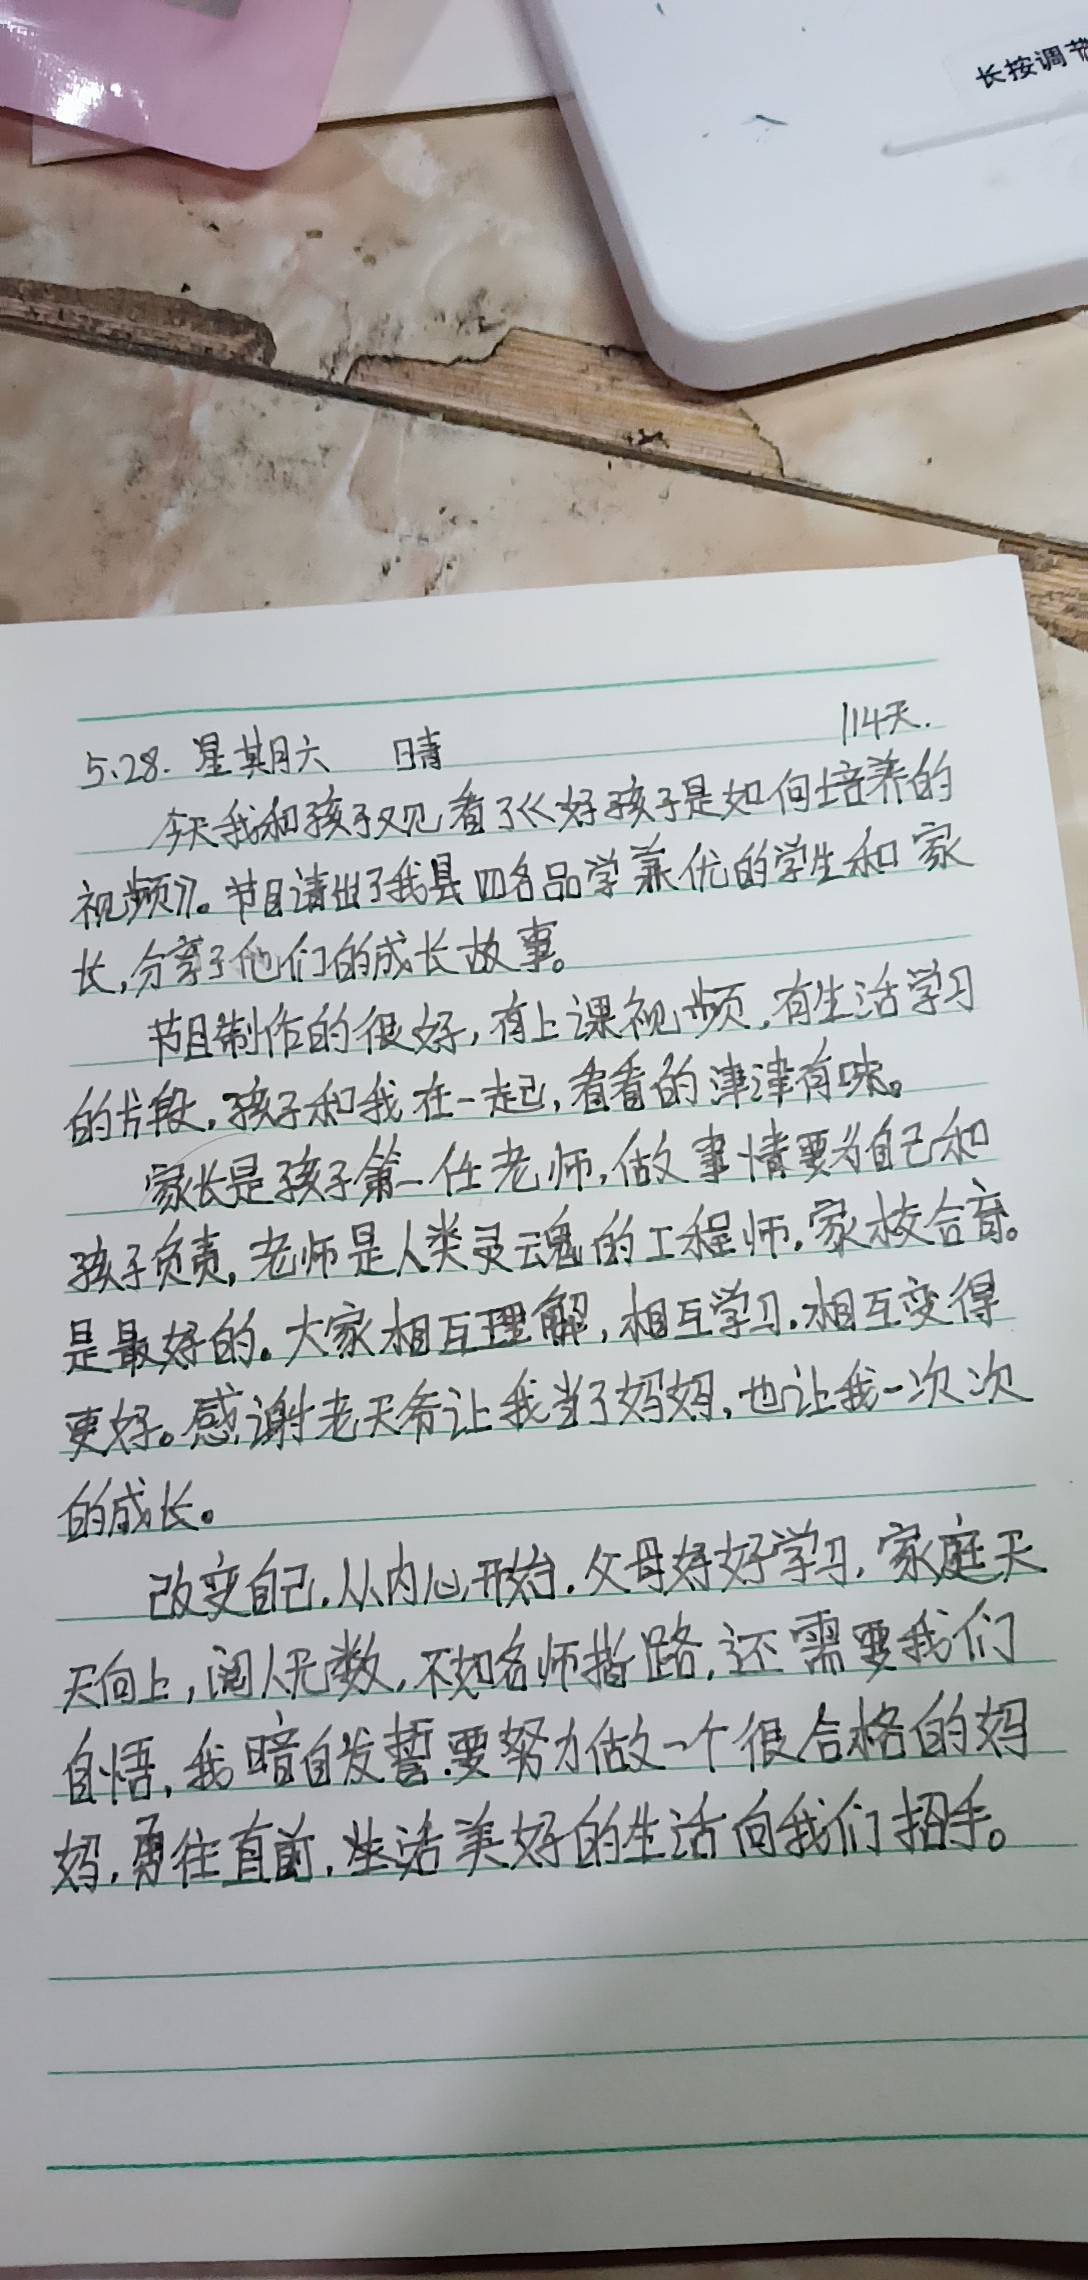 长按调节
5.28. 星期六 晴 114天.
今天我和孩子观看了《好孩子是如何培养的
视频》。节目请出了我县四名品学兼优的学生和家
长,分享了他们的成长故事。
节目制作的很好,有上课视频,有生活学习
的片段,孩子和我在一起,看看的津津有味。
家长是孩子第一任老师,做事情要为自己和
孩子负责,老师是人类灵魂的工程师,家校合育。
是最好的。大家相互理解,相互学习.相互变得
更好。感谢老天爷让我当了妈妈,也让我一次次
的成长。
改变自己.从内心开始.父母好好学习,家庭天
天向上,阅人无数,不如名师指路,还需要我们
自悟,我暗自发誓.要努力做一个很合格的妈
妈,勇往直前.生活美好的生活向我们招手。